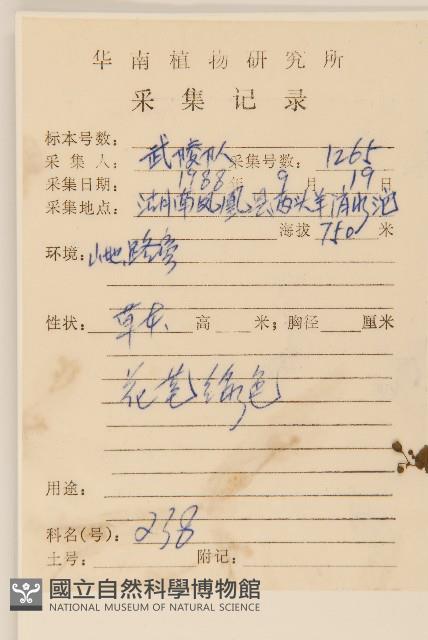 华南植物研究所
采集记录
标本号数:
采集人: 武陵队 采集号数: 1265
采集日期: 1988年 9月 19日
采集地点: 湖南凤凰县两头羊消水沱
海拔 750 米
环境: 山地路旁
性状: 草本 高 米; 胸径 厘米
花萼绿色
用途:
科名(号): 238
土号: 附记:
國立自然科學博物館
NATIONAL MUSEUM OF NATURAL SCIENCE